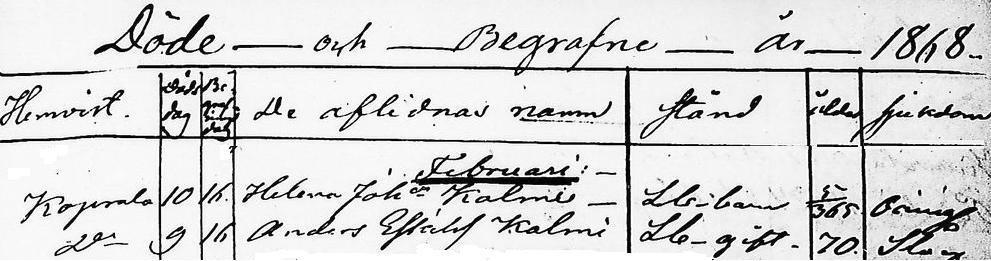 Döde — och — Begrafne — år — 1868.
Hemvist. Döds dag Be graf dag De aflidnas namn Stånd ålder sjukdom
Februari: —
Koprala 10 16. Helena Joh:sr Kalmi — Lb:barn 5/365
D:o 9 16 Anders Kalmi Lb- gift. 70.